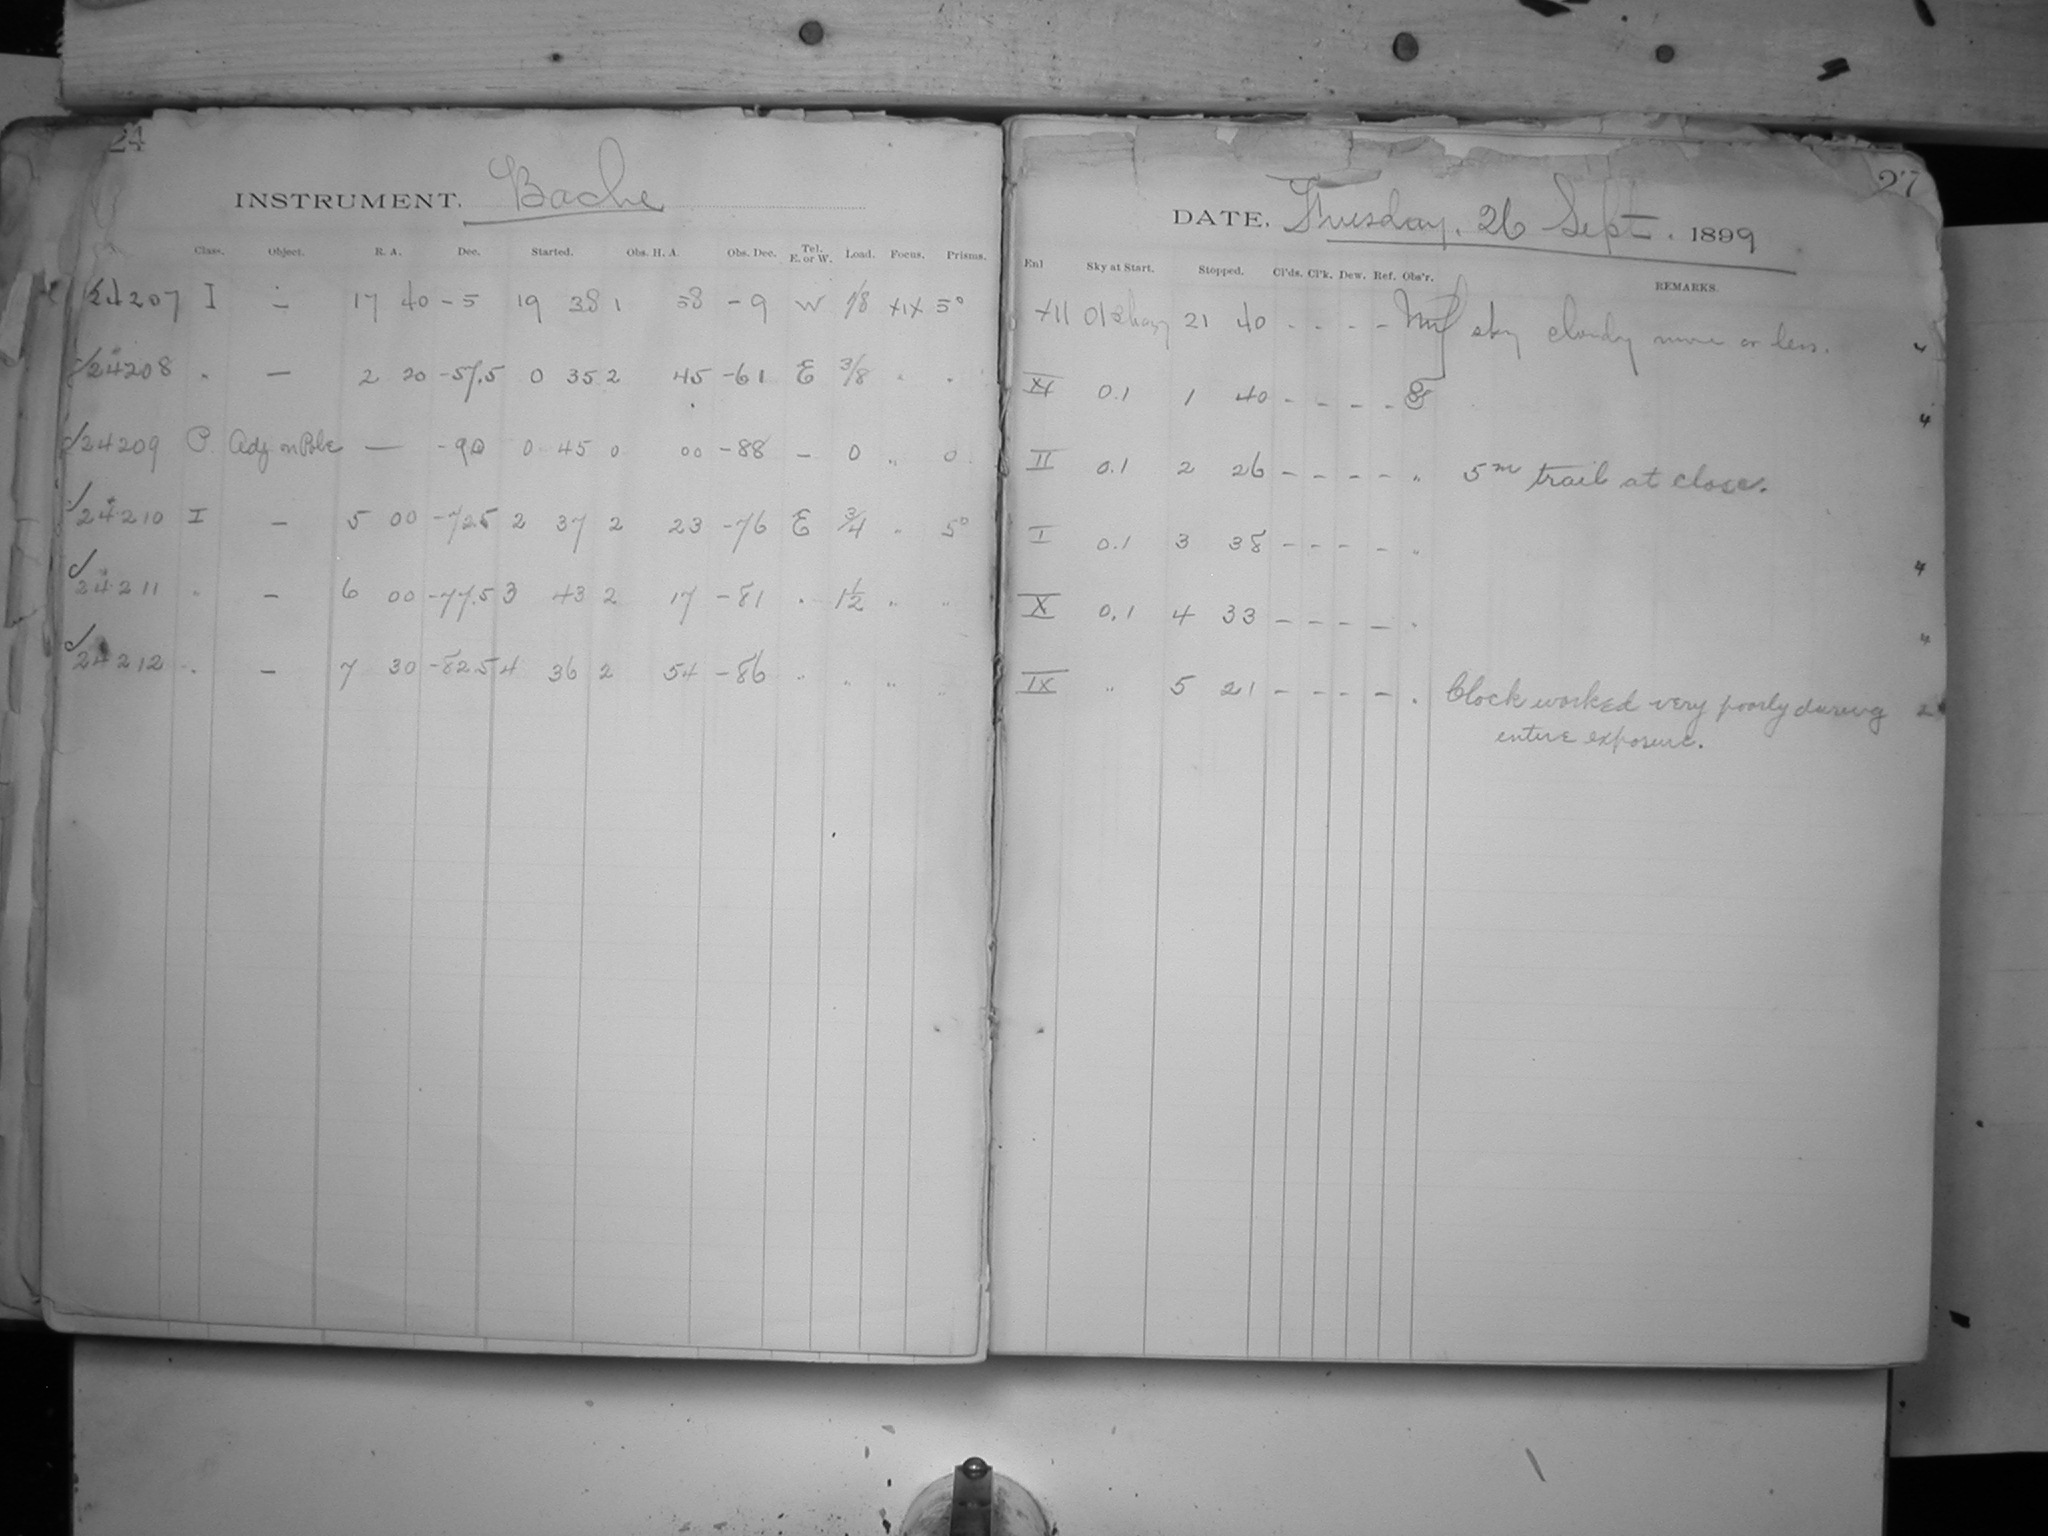 24
INSTRUMENT. Bache
Class. Object. R. A. Dec. Started. Obs. H. A. Obs. Dec. Tel. E. or W. Load. Focus. Prisms.
24207 I — 17 40 -5 19 38 1 58 -9 W 1/8 +1+ 5°
24208 " — 2 20 -57.5 0 35 2 45 -61 E 3/8 " "
24209 P. Adj on Pole — -90 0 45 0 00 -88 — 0 " 0
24210 I — 5 00 -72.5 2 37 2 23 -76 E 3/4 " 5°
24211 " — 6 00 -77.5 3 43 2 17 -81 " 1½ " "
24212 " — 7 30 -82.5 4 36 2 54 -86 " " " "
27
DATE. Tuesday, 26 Sept. 1899
Enl Sky at Start. Stopped. Cl'ds. Cl'k. Dew. Ref. Obs'r. REMARKS.
XII hazy 21 40 - - - - sky cloudy more or less. 4
XI 0.1 1 40 - - - - 4
II 0.1 2 26 - - - - " 5m trail at close.
I 0.1 3 38 - - - - " 4
X 0.1 4 33 - - - - " 4
IX " 5 21 - - - - " Clock worked very poorly during 2
entire exposure.